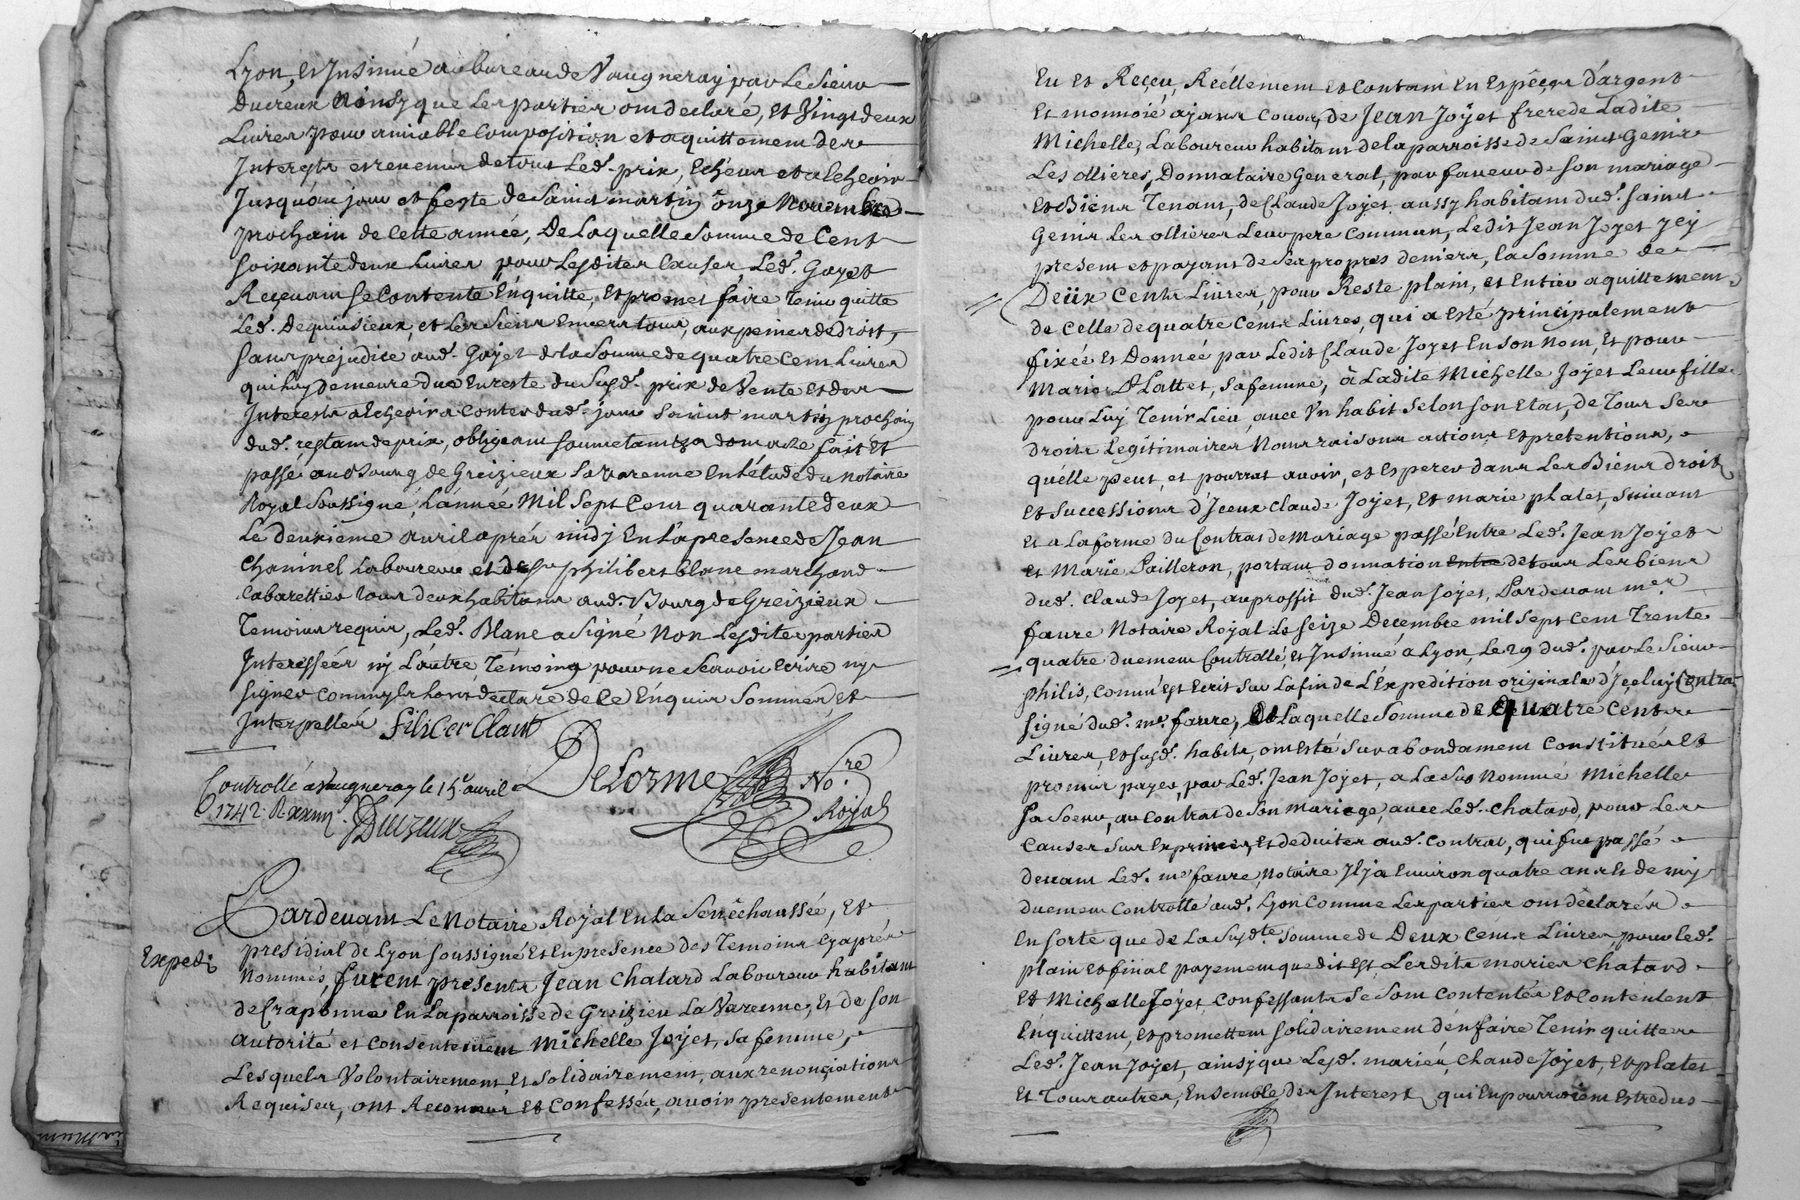 Lyon, et Insinué au bureau de Vaugneray par Le Sieur
Ducreux Ainsy que Les parties ont declaré, et Vingt deux
Livres pour amiable Composition et aquittement des
Interests et revenus de tout Led. prix, Echeus et a Echeoir
Jusqu'au jour et feste de Saint martin onze Novembre
prochain de Cette année, De Laquelle Somme de Cent
soixante deux Livres pour Lesdites Causes, Led. Goyet
Reçevant se Contente Enquitte, et promet faire tenir quitte
Led. Dequinsieux, et Les Siens Envers tous, aux peines de Droit,
sans prejudice aud. Goyet de la Somme de quatre Cent Livres
qui luy Demeure due En reste du Susd. prix de Vente et des
Interests a Echeoir a Conter dud. jour Saint martin prochain
dud. restant de prix, obligeant soumetant &a dont acte fait et
passé aud. Bourg de Greizieux La Varenne En l'étude du Notaire
Royal Soussigné, L'année Mil Sept Cent quarante deux
Le deuxieme avril aprés midy En La presence de Jean
Laboureur et de Sr philibert blanc marchand
Cabarettier tous deux habitans aud. Bourg de Greizieux
Temoins requis, Led. Blanc a Signé Non Lesdites parties
Interessées ny L'autre Témoing pour ne Scavoir Ecrire ny
signer Comm'ils L'ont declaré de Ce Enquis Sommés et
Interpellés
Delorme No.re
Royal
Controllé a Vaugneray le 15 avril
1742
Pardevant Le Notaire Royal En La Senéchaussée, Et
Exped.
presidial de Lyon soussigné Et En presence des Temoins Cy aprés
Nommés, furent presents Jean Chatard Laboureur habitant
de Craponne En La parroisse de Greizieu La Varenne, Et de son
autorité et Consentement Michelle Joyet, sa femme,
Lesquels Volontairement Et Solidairement, aux renonciations
Requises, ont Reconnus Et Confessés, avoir presentement
Eu et Reçeu, Réellement et Contant En Espêces d'argent
et monnoié ajant Cours, de Jean Joyet frere de Ladite
Michelle, Laboureur habitant de la parroisse de Saint Genis
Les ollieres, Donnataire General, par faveur de son mariage
et Biens Tenant, de Claude Joyet aussy habitant dud. Saint
Genis Les ollieres Leur pere Commun, Ledit Jean Joyet Jcy
present et payant de ses propres deniers, la Somme de
Deüx Cents Livres, pour Reste plain, et Entier aquittement
de Celle de quatre Cents Livres, qui a esté principalement
fixée et Donnée par Ledit Claude Joyet En son Nom, Et pour
Marie Plattet, sa femme, â Ladite Michelle Joyet Leur fille
pour Luy Tenir Lieu, avec Un habit Selon son Etat, de Tous Ses
droits Legitimaires Noms raisons actions Et pretentions,
qu'elle peut, et pourrat avoir, et Esperer dans Les Biens droits
et Successions d'Jceux Claude Joyet, Et marie platet, Suivant
et a La forme du Contrat de Mariage passé Entre Led. Jean Joyet
et Marie Pailleron, portant donnation Entre de tous Les biens
dud. Claude Joyet, au proffit dud. Jean Joyet, Pardevant me.
faure Notaire Royal Le Seize Decembre mil sept Cent Trente
quatre duement Controllé, et Insinué a Lyon, Le 29 dud. par Le Sieur
Philis, Comm'est Ecrit Sur La fin de L'Expedition originale d'Jceluy Contra
signé dud. me. faure, De Laquelle Somme de quatre Cents
Livres, et susd. habit, ont esté Surabondament Constitués Et
promis payer, par Led. Jean Joyet, a La Sus Nommé Michelle
sa Soeur, au Contrat de Son mariage, avec Led. Chatard, pour Les
Causes Sur Exprimées, et deduites aud. Contrat, qui fut passé
devant Led. me faure, Notaire Jl ja Environ quatre ans Et demy
duement Controllé aud. Lyon Comme Les parties ont déclarés
En sorte que de La Susdte. Somme de Deux Cents Livres pour Led.
plain et final payement que dit Est Lesdits mariés Chatard
Et Michelle Joyet, Confessants Se Sont Contentés Et Contentent
Enquittent, et promettent solidairement d'en faire Tenir quittes
Led. Jean Joyet, ainsy que Lesd. mariés, Claude Joyet, et platet
Et Tous autres, Ensemble des Interest qui En pourroient Estre dus